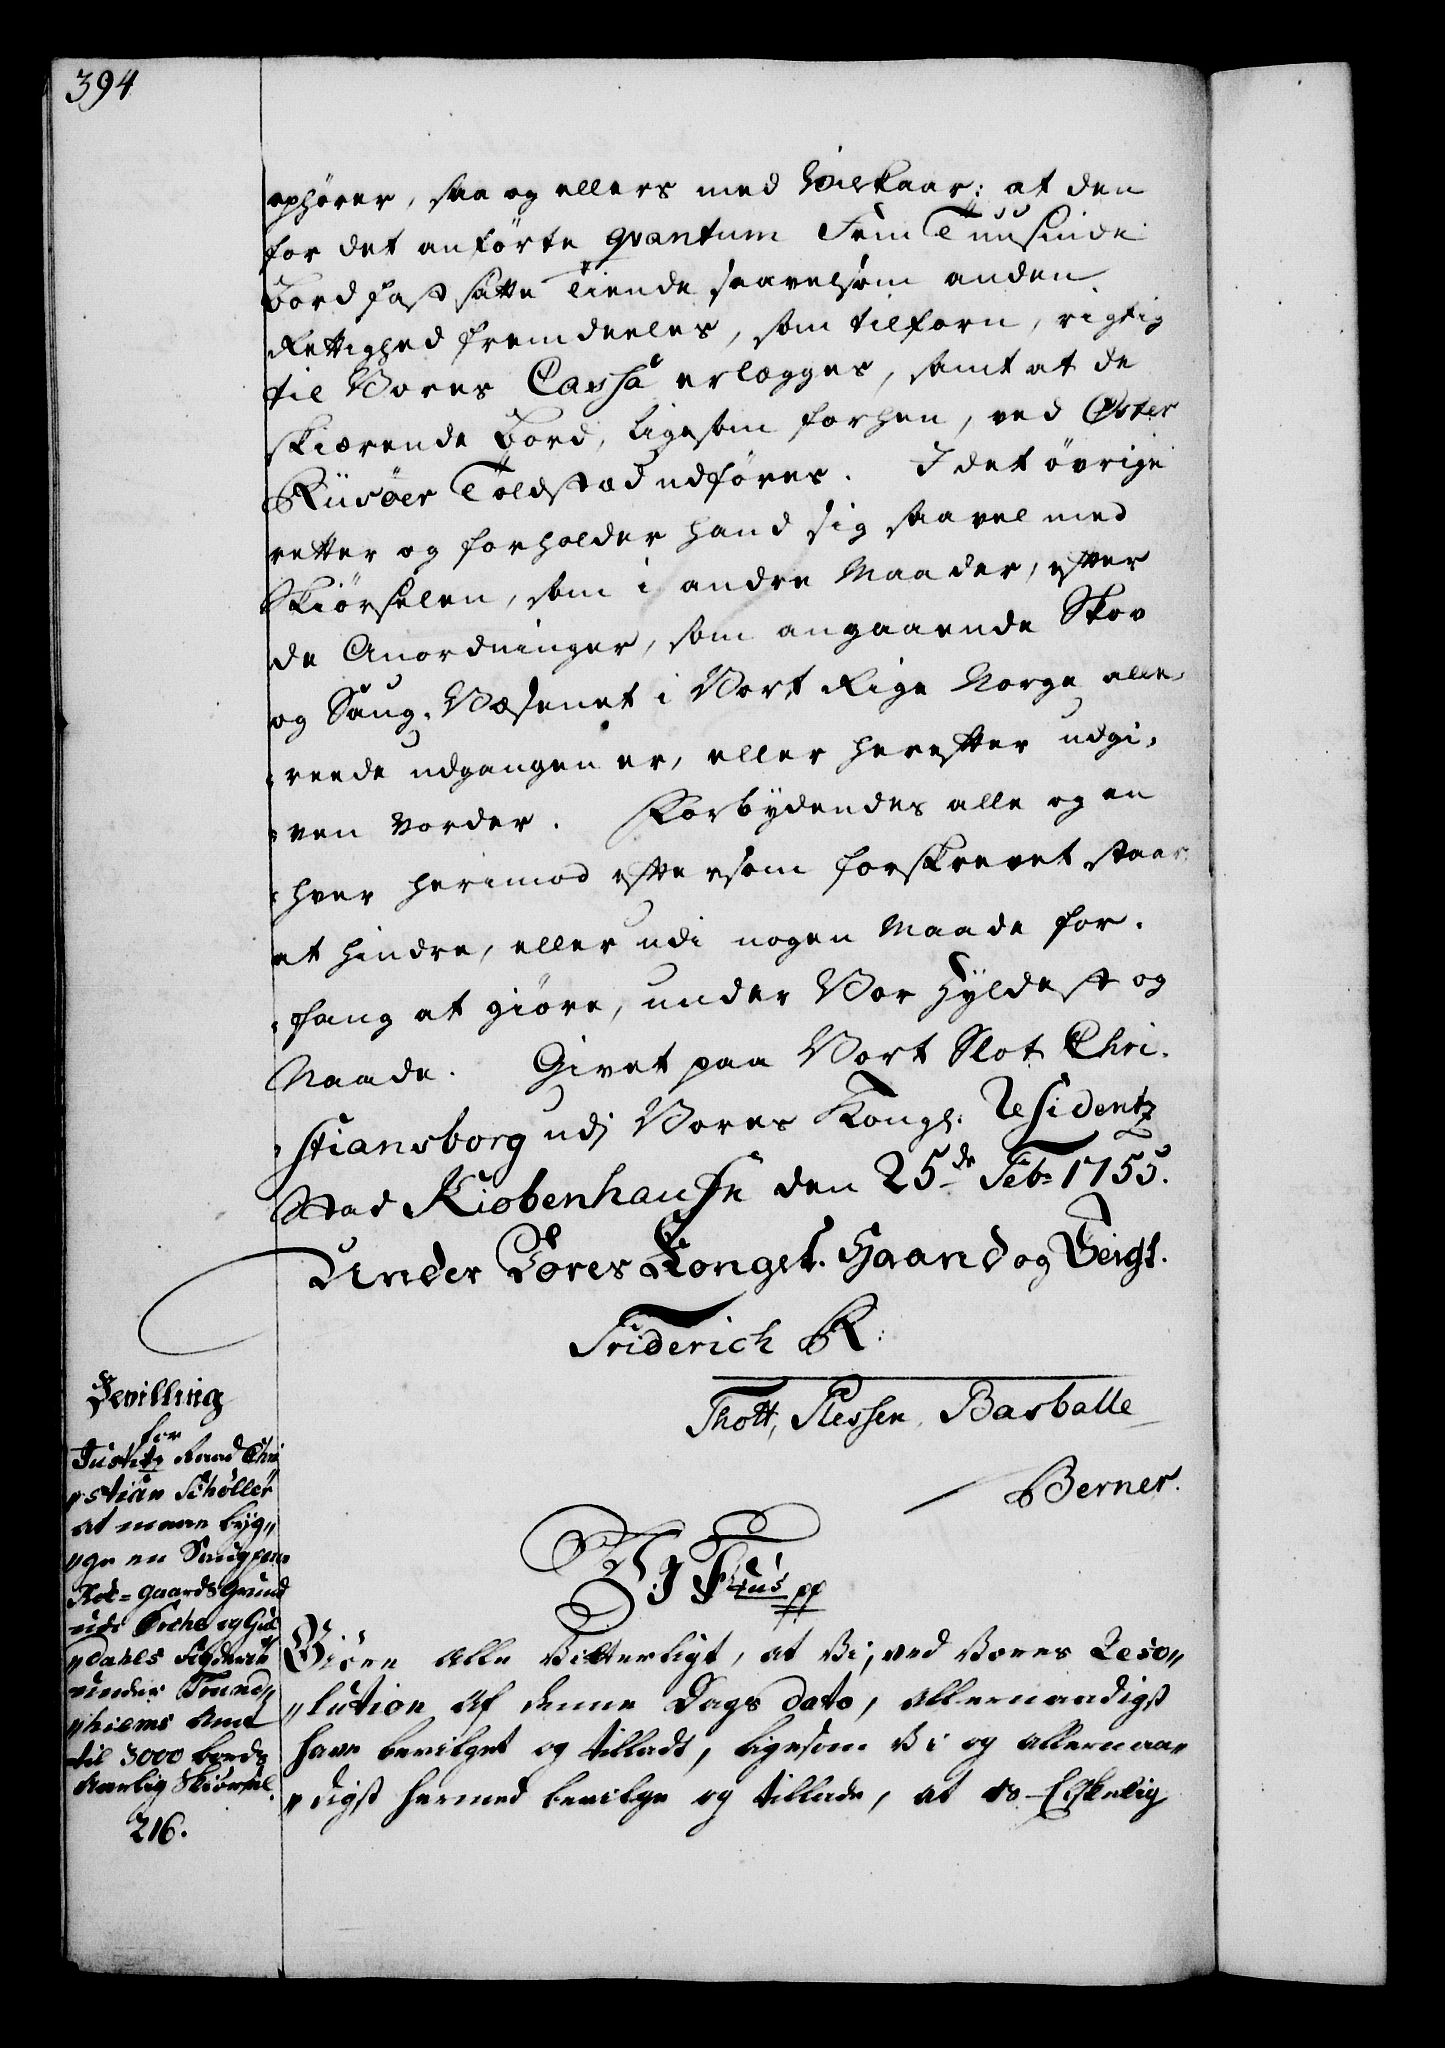 394
ophører, saa og ellers med Vilkaar: at den
for det anførte qvantum Fem Tuusinde
Bord fastsatte Tiende saavelsom anden
Rettighed fremdeeles, som tilforn, rigtig
til Vores Cassa erlægges, samt at de
skiærende Bord, ligesom forhen, ved Øster
Riisöer Toldsted udføres. I det øvrige
retter og forholder hand sig saavel med
Skiørselen, som i andre Maader, efter
de Anordninger, som angaaende Skov
og Saug-Væsenet i Vort Rige Norge alle-
-reede udgangen er, eller herefter udgi-
-ven vorder. Forbydendes alle og en
-hver herimod eftersom forskrevet staar
at hindre, eller udi nogen Maade for-
-fang at giøre, under Vor Hyldest og
Naade. Givet paa Vort Slot Chri-
-stiansborg udj Vores Kongl: Residentz
Stad Kiøbenhaufn den 25de Feb: 1755.
Under Vores Kongel. Haand og Seigl.
Friderich R:
Thott, Plessen, Basballe
Berner.
Bevilling
for
Justitz Raad Chri
"stian Schøller
at maae byg"
"ge en Saug paa
Gaards Grund
udi og Gul
"dahls Fogderie
under Trund"
"hiems Amt
til 3000 bords
Aarlig Skiørsel.
216.
Wj F 5tus pp
Giøre Alle Vitterligt, at Vi, ved Vores Reso"
"lution Af denne Dags Dato, Allernaadigst
have bevilget og tilladt, ligesom Vi og Allernaa"
"digst hermed bevilge og tillade, at Os Elskelig